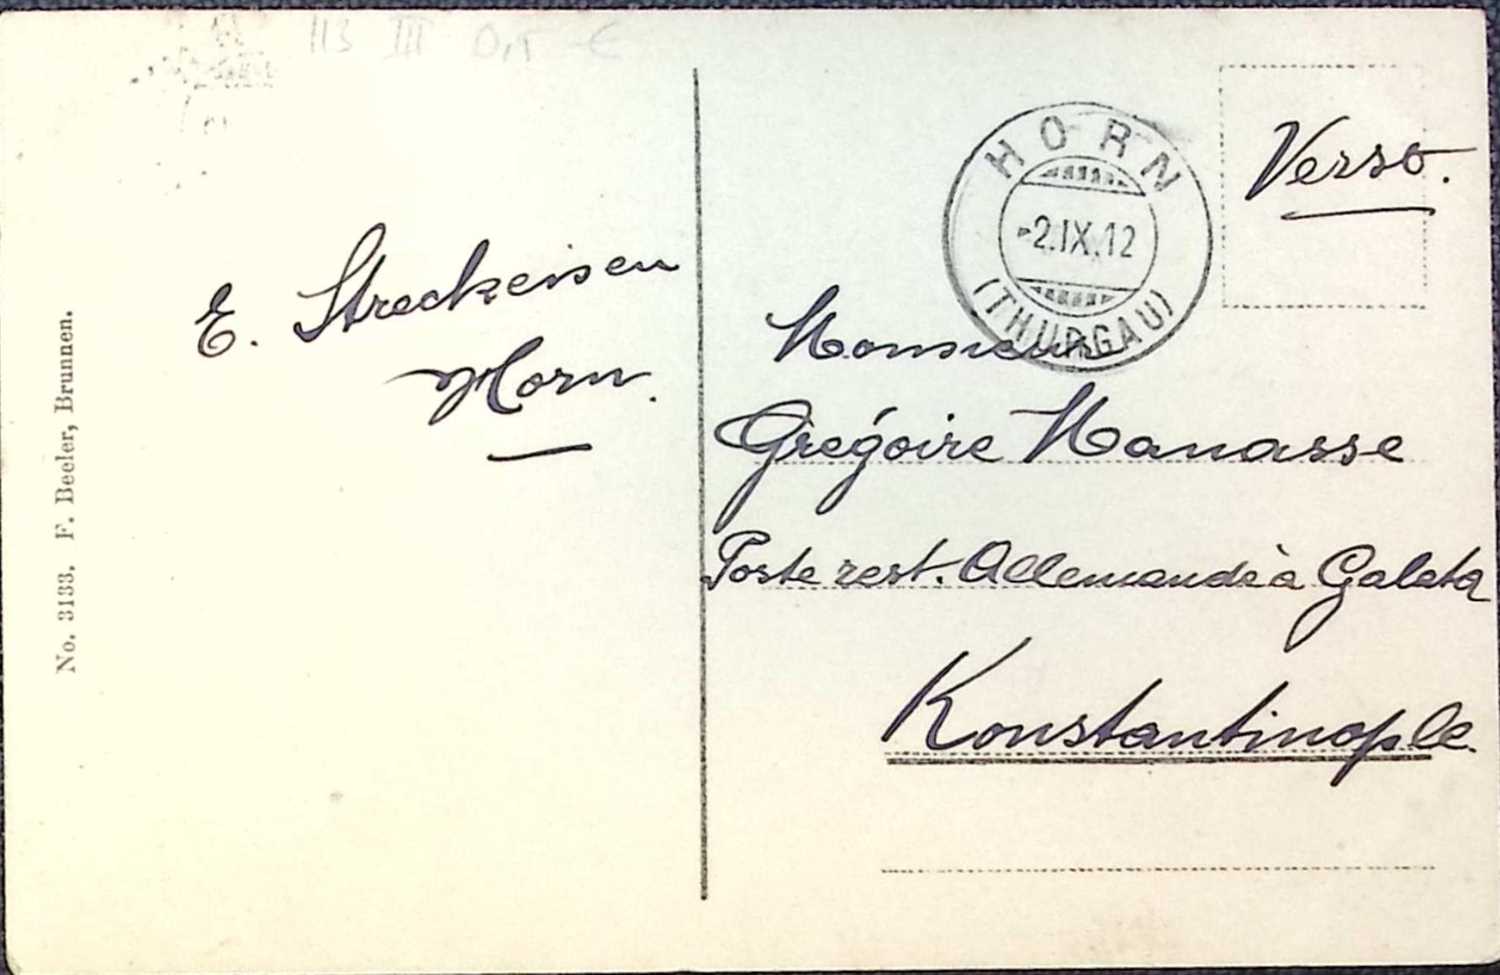 113 III 0,5 €
HORN
-2.IX.12
(THURGAU)
Verso.
E. Streckeisen
Horn.
Monsieur
Grégoire Manasse
Poste rest. Allemande à Galata
Konstantinople.
No. 3133. F. Beeler, Brunnen.